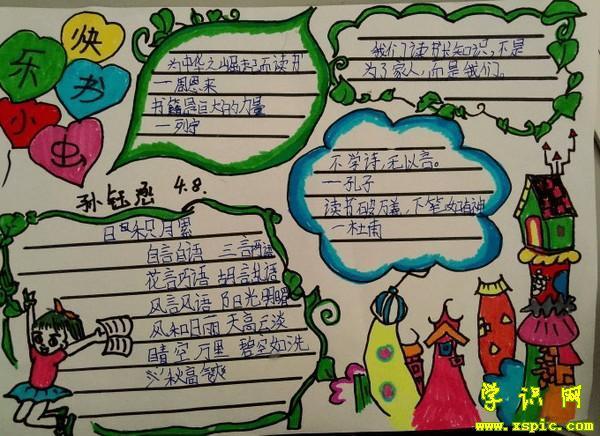 快
乐书
小虫
为中华之崛起而读书
一周恩来
书籍是巨大的力量
一列宁
我们读书长知识,不是
为了家人,而是我们。
不学诗,无以言。
一孔子
读书破万卷,下笔如有神
一杜甫
孙钰涵 4.8.
日积月累
自言自语 三言两语
花言巧语 胡言乱语
风言风语 阳光明媚
风和日丽 天高云淡
晴空万里 碧空如洗
秋高气爽
学识网
www.xspic.com